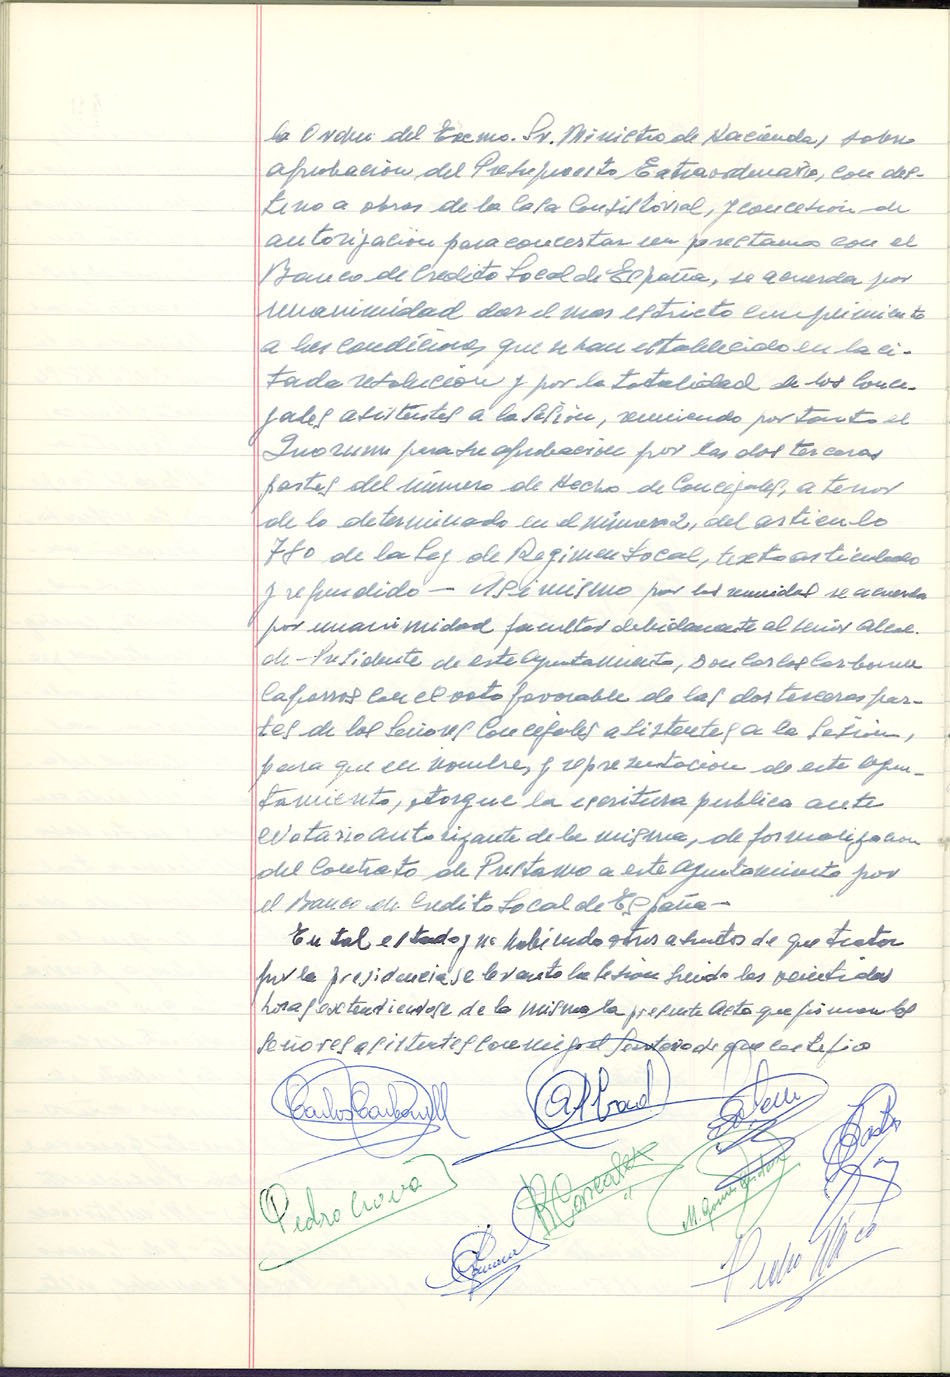 la Orden del Excmo. Sr. Ministro de Hacienda, sobre
aprobacion del Presupuesto Extraordinario, con des-
tino a obras de la Casa Consistorial, y concesion de
autorizacion para concertar un prestamo con el
Banco de Credito Local de España, se acuerda por
unanimidad dar el mas estricto cumplimiento
a las condiciones que se han establecido en la ci-
tada resolución y por la totalidad de los Conce-
jales asistentes a la Sesión, reuniendo por tanto el
Quorum para su aprobacion por las dos terceras
partes del número de Hecho de Concejales, a tenor
de lo determinado en el número 2, del articulo
780 de la Ley de Regimen Local, texto articulado
y refundido — Asi mismo por los reunidos se acuerda
por unanimidad facultar debidamente al señor Alcal-
de-Presidente de este Ayuntamiento, Don Carlos Carbonell
Caparros con el voto favorable de las dos terceras par-
tes de los Señores Concejales asistentes a la Sesion,
para que en nombre y representacion de este Ayun-
tamiento, otorgue la escritura publica ante
Notario autorizante de la misma, de formalizacion
del Contrato de Prestamo a este Ayuntamiento por
el Banco de Credito Local de España—
En tal estado y no habiendo otros asuntos de que tratar
por la presidencia se levanto la sesion siendo las veintidos
horas extendiendose de la misma la presente Acta que firman los
Señores asistentes conmigo el Secretario de que certifico
Carlos Carbonell
Pedro Chova
R Gonzalez
Pedro Micó